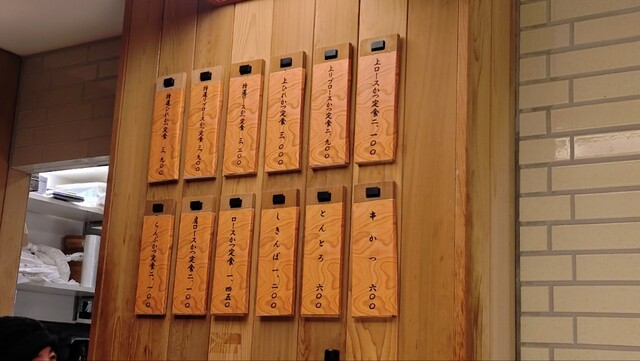 上ロースかつ定食 二、一〇〇
上リブロースかつ定食 二、九〇〇
上ひれかつ定食 三、〇〇〇
特選ロースかつ定食 三、二〇〇
特選リブロースかつ定食 三、九〇〇
特選ひれかつ定食 三、九〇〇
串かつ 六〇〇
とんとろ 六〇〇
しきんぼ 一、二〇〇
ロースかつ定食 一、四五〇
ロースかつ定食 二、一〇〇
らんぷかつ定食 二、一〇〇